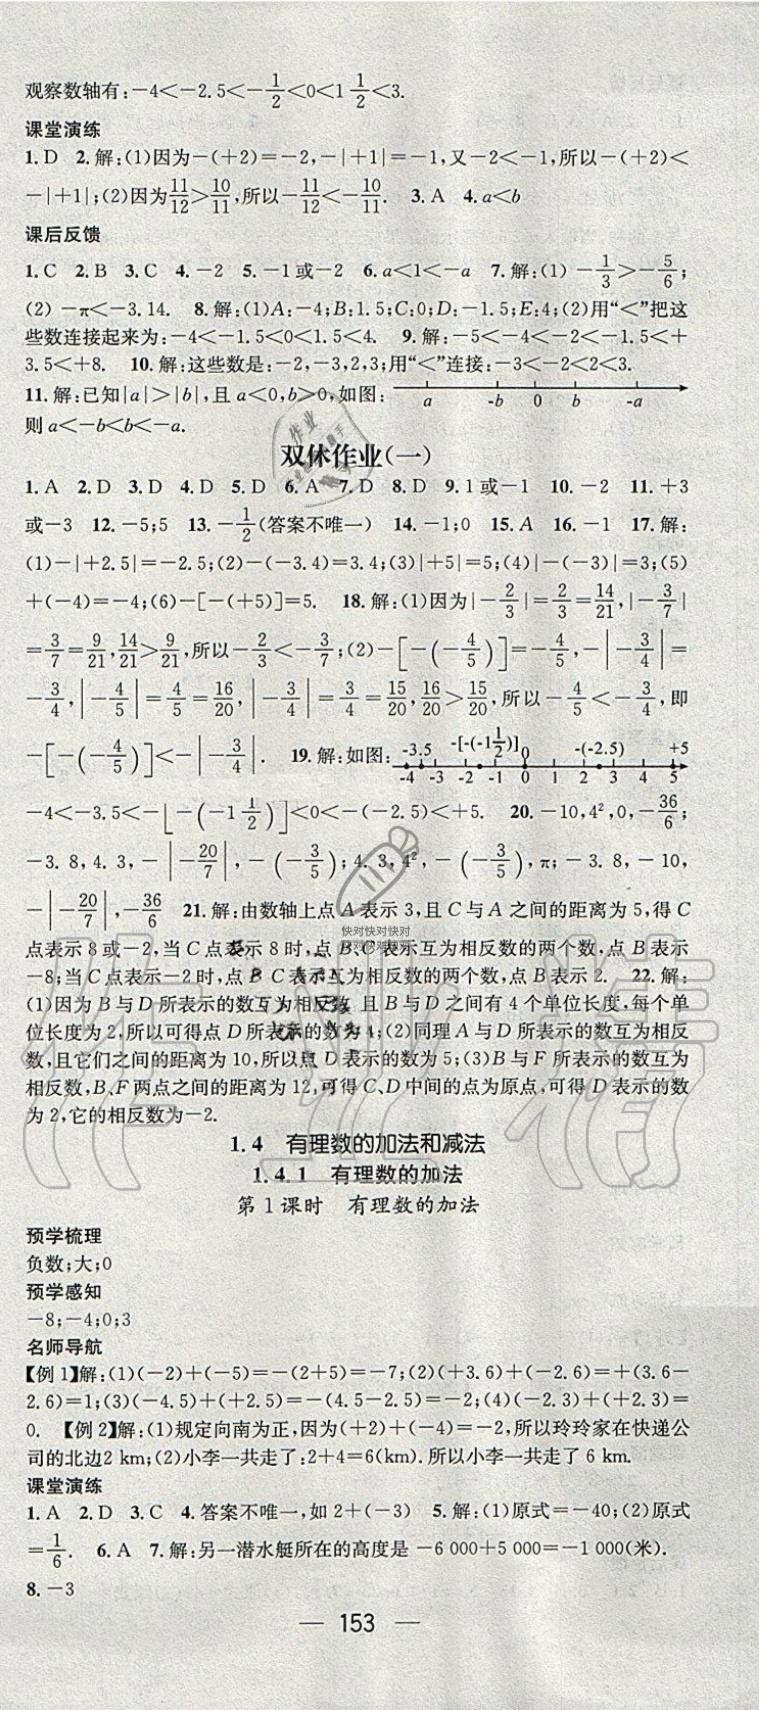 观察数轴有:-4<-2.5<-1/2<0<1 1/2<3.
课堂演练
1. D 2. 解:(1)因为-(+2)=-2,-|+1|=-1,又-2<-1,所以-(+2)<
-|+1|;(2)因为11/12>10/11,所以-11/12<-10/11. 3. A 4. a<b
课后反馈
1. C 2. B 3. C 4. -2 5. -1或-2 6. a<1<-a 7. 解:(1) -1/3>-5/6;
(2) -π<-3.14. 8. 解:(1)A:-4;B:1.5;C:0;D:-1.5;E:4;(2)用“<”把这
些数连接起来为:-4<-1.5<0<1.5<4. 9. 解:-5<-4<-2<-1.5<+
3.5<+8. 10. 解:这些数是:-2,-3,2,3;用“<”连接:-3<-2<2<3.
11. 解:已知|a|>|b|,且a<0,b>0,如图: a -b 0 b -a
则a<-b<b<-a.
双休作业(一)
1. A 2. D 3. D 4. D 5. D 6. A 7. D 8. D 9. 1或-1 10. -2 11. +3
或-3 12. -5;5 13. -1/2(答案不唯一) 14. -1;0 15. A 16. -1 17. 解:
(1)-|+2.5|=-2.5;(2)-(-3.4)=3.4;(3)|+5|=5;(4)|-(-3)|=3;(5)
+(-4)=-4;(6)-[-(+5)]=5. 18. 解:(1)因为|-2/3|=2/3=14/21,|-3/7|
=3/7=9/21,14/21>9/21,所以-2/3<-3/7;(2)-[-(-4/5)]=-4/5,-|-3/4|=
-3/4,|-4/5|=4/5=16/20,|-3/4|=3/4=15/20,16/20>15/20,所以-4/5<-3/4,即
-[-(-4/5)]<-|-3/4|. 19. 解:如图: -3.5 -[-(-1 1/2)] 0 -(-2.5) +5
-4 -3 -2 -1 0 1 2 3 4 5
-4<-3.5<-[-(-1 1/2)]<0<-(-2.5)<+5. 20. -10,4²,0,-36/6;
-3.8,4.3,-|-20/7|,-(-3/5);4.3,4²,-(-3/5),π;-3.8,-10,
-|-20/7|,-36/6 21. 解:由数轴上点A表示3,且C与A之间的距离为5,得C
点表示8或-2,当C点表示8时,点B、C表示互为相反数的两个数,点B表示
-8;当C点表示-2时,点B、C表示互为相反数的两个数,点B表示2. 22. 解:
(1)因为B与D所表示的数互为相反数,且B与D之间有4个单位长度,每个单
位长度为2,所以可得点D所表示的数为4;(2)同理A与D所表示的数互为相反
数,且它们之间的距离为10,所以点D表示的数为5;(3)B与F所表示的数互为
相反数,B、F两点之间的距离为12,可得C、D中间的点为原点,可得D表示的数
为2,它的相反数为-2.
1.4 有理数的加法和减法
1.4.1 有理数的加法
第1课时 有理数的加法
预学梳理
负数;大;0
预学感知
-8;-4;0;3
名师导航
【例1】解:(1)(-2)+(-5)=-(2+5)=-7;(2)(+3.6)+(-2.6)=+(3.6-
2.6)=1;(3)(-4.5)+(+2.5)=-(4.5-2.5)=-2;(4)(-2.3)+(+2.3)=
0. 【例2】解:(1)规定向南为正,因为(+2)+(-4)=-2,所以玲玲家在快递公
司的北边2 km;(2)小李一共走了:2+4=6(km).所以小李一共走了6 km.
课堂演练
1. A 2. D 3. C 4. 答案不唯一,如2+(-3) 5. 解:(1)原式=-40;(2)原式
=1/6. 6. A 7. 解:另一潜水艇所在的高度是 -6 000+5 000=-1 000(米).
8. -3
— 153 —
作业精
快对快对快对
快对快对快对